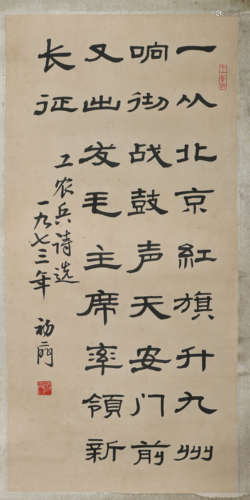 一从北京紅旗升九州
响彻战鼓声天安门前
又出发毛主席率領新
长征
工农兵诗选
一九七三年